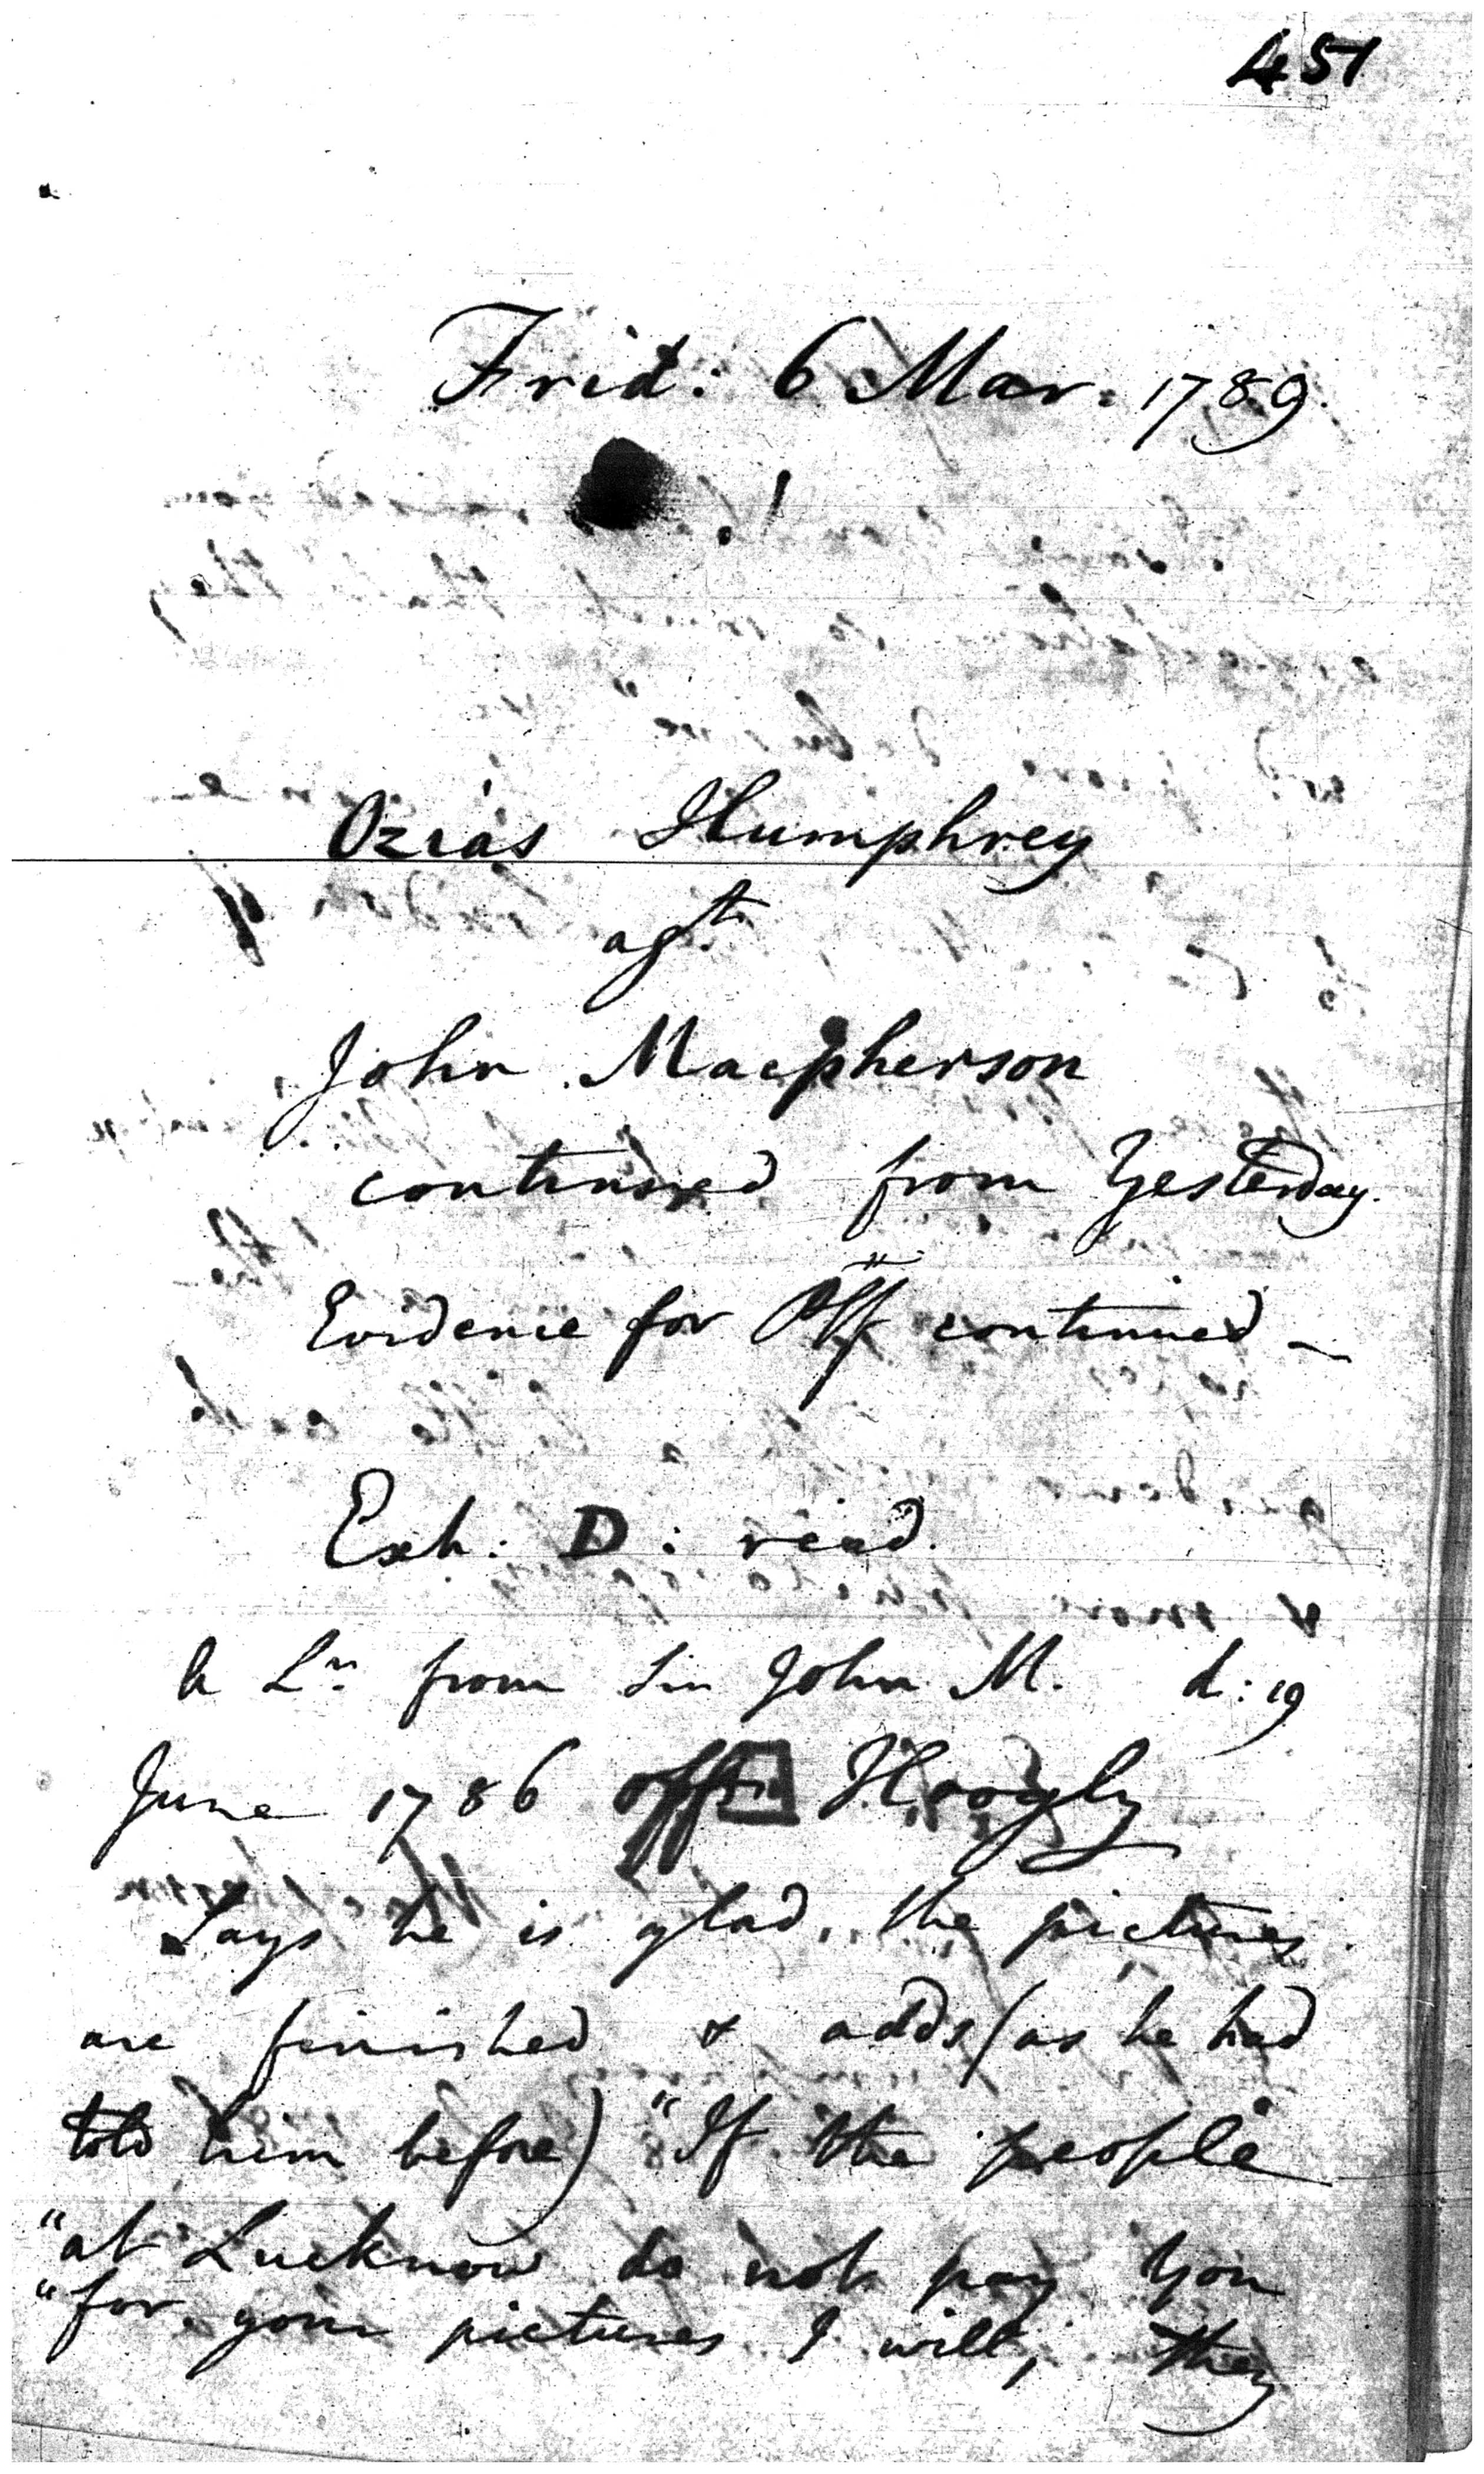 451
Frid: 6 Mar. 1789.
Ozias Humphrey
agt.
John Macpherson
continued from Yesterday.
Evidence for Plff continued
Exh: D: read.
A Lr. from Sir John M. d: 19
June 1786 off Hoogly
Says he is glad, the pictures
are finished & adds (as he had
told him before) "If the people
"at Lucknow do not pay You
"for your pictures I will; they